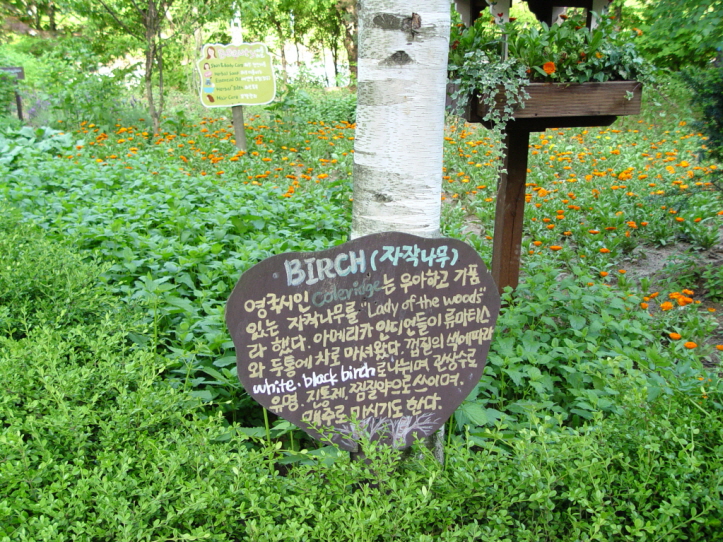 BIRCH (자작나무)
영국시인 Coleridge는 우아하고 기품
있는 자작나무를 "Lady of the woods"
라 했다. 아메리카 인디언들이 류마티스
와 두통에 차로 마셔왔다. 껍질의 색에따라
white, black birch로 나뉘며 관상수로
유명. 진통제, 찜질약으로 쓰이며,
맥주로 마시기도 한다.